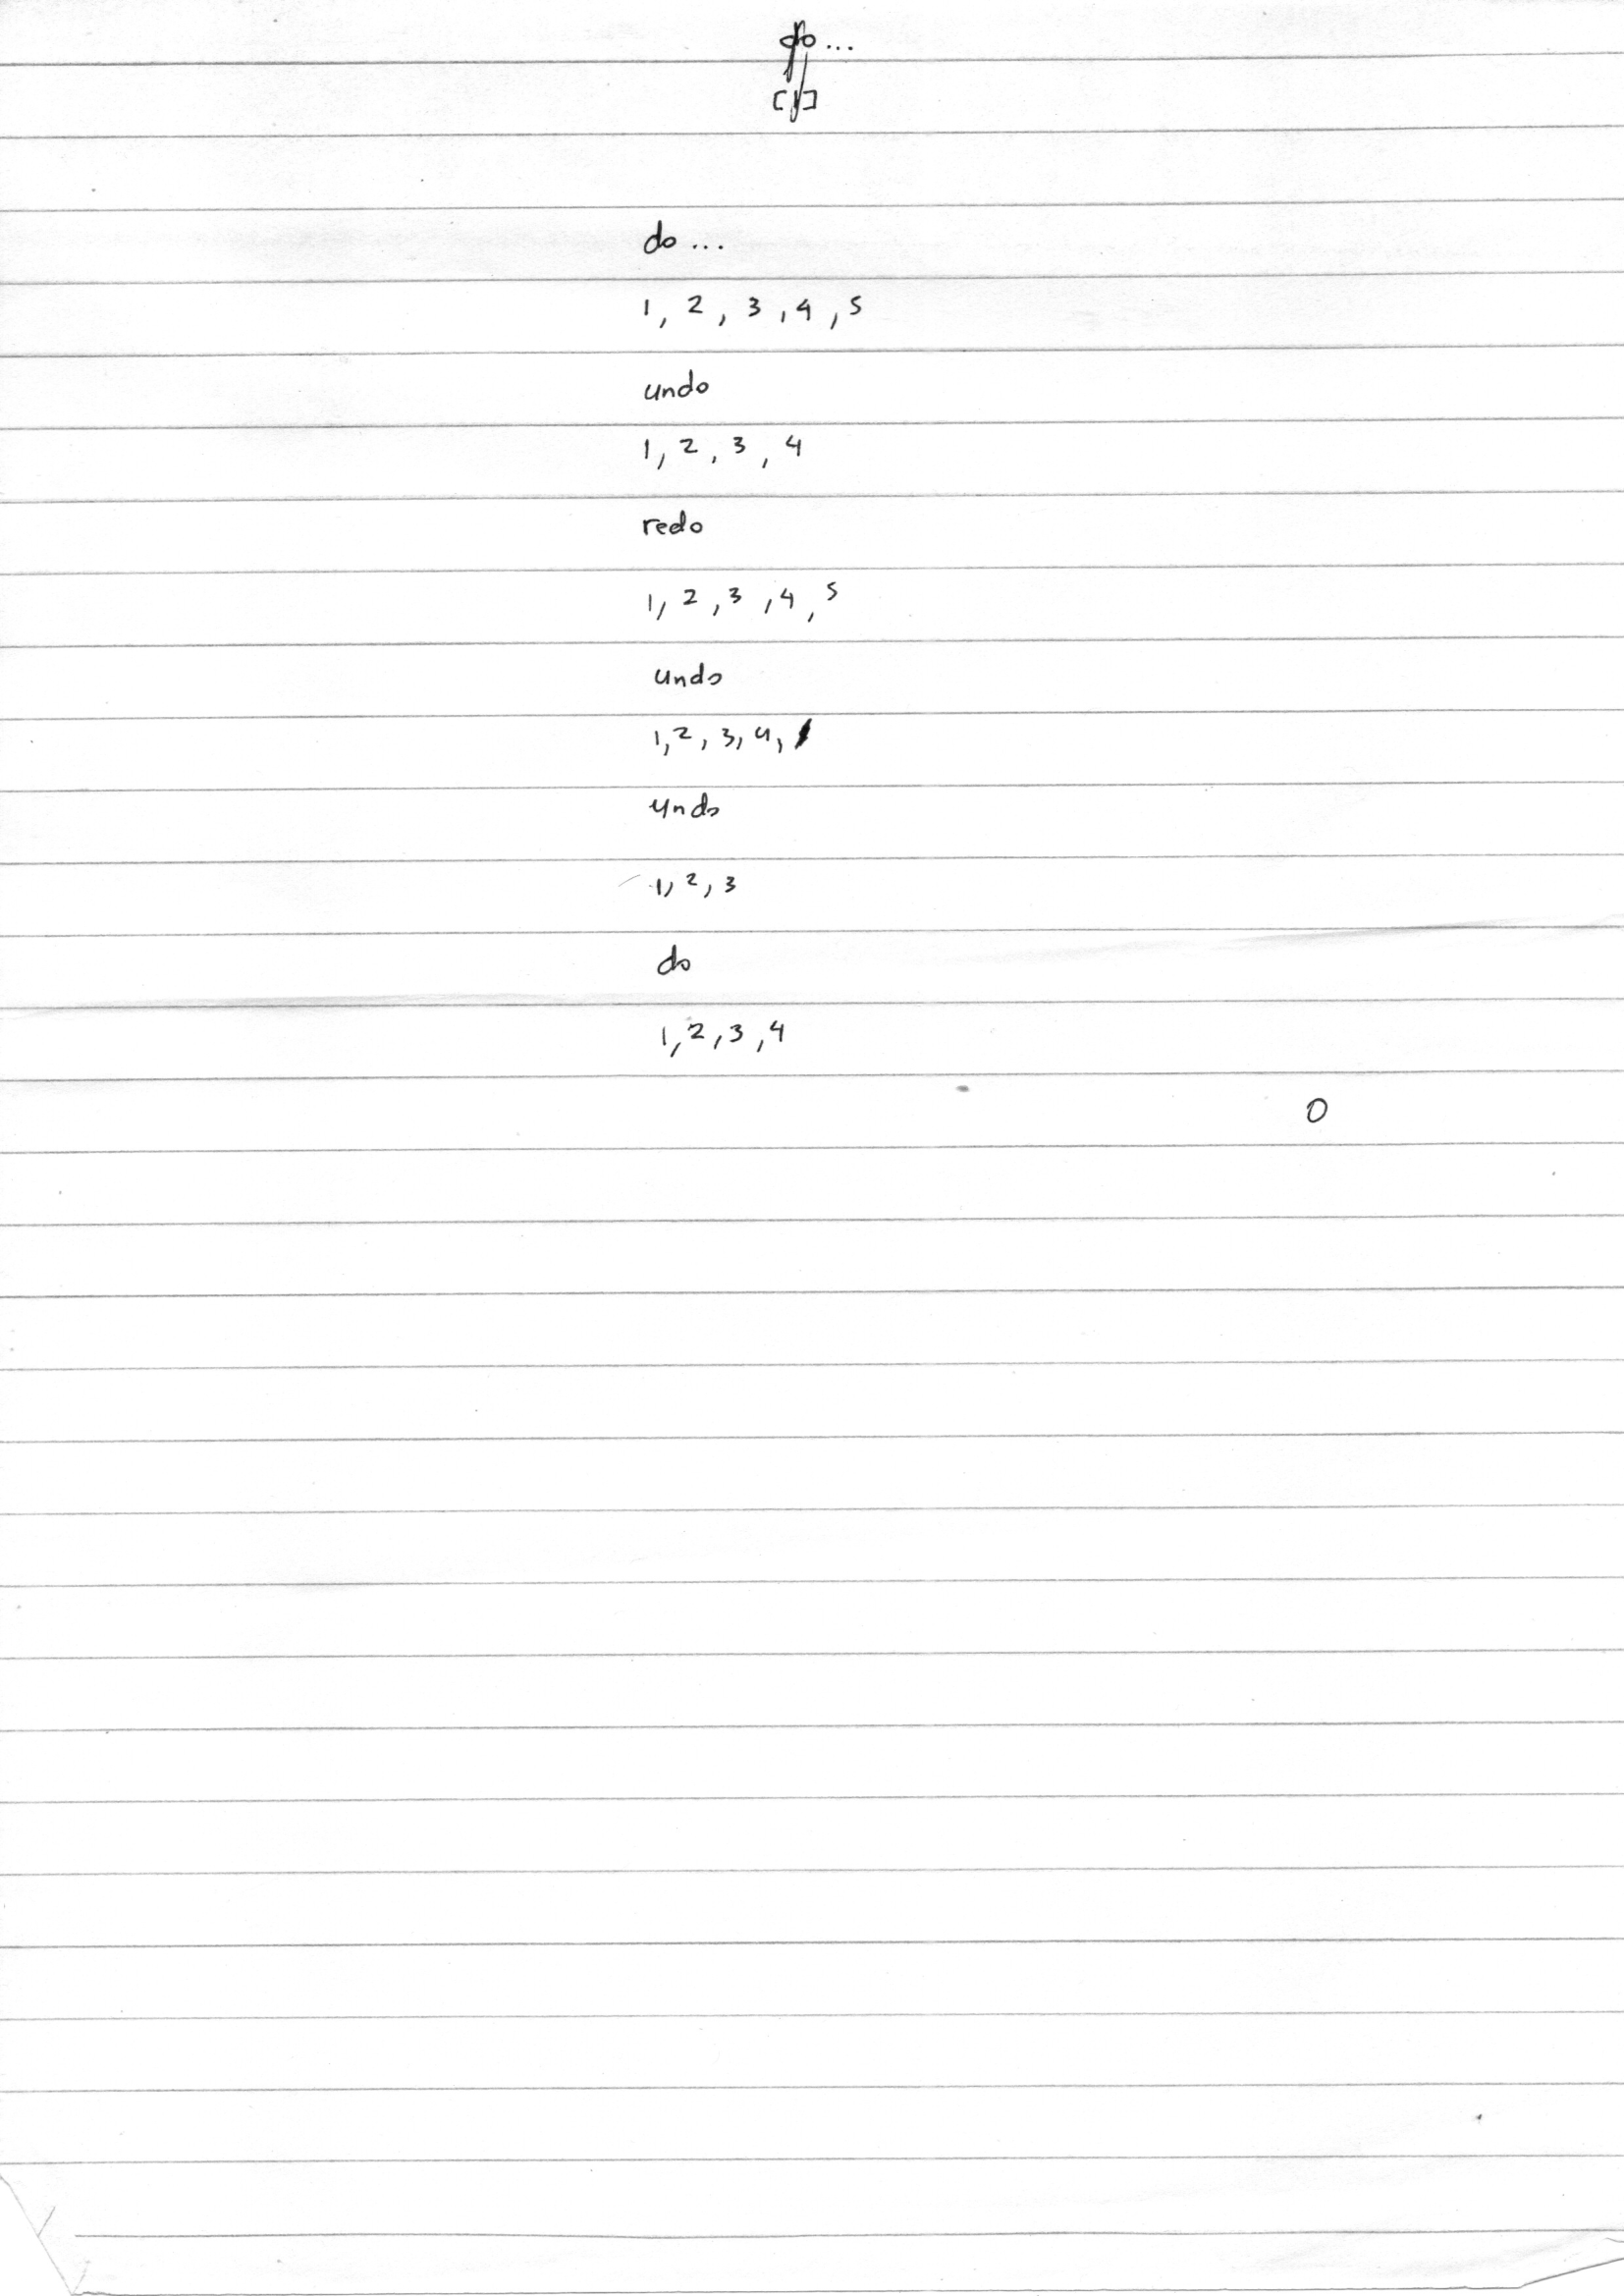 do...
[]
do...
1, 2, 3, 4, 5
undo
1, 2, 3, 4
redo
1, 2, 3, 4, 5
undo
1, 2, 3, 4,
undo
1, 2, 3
do
1, 2, 3, 4
0